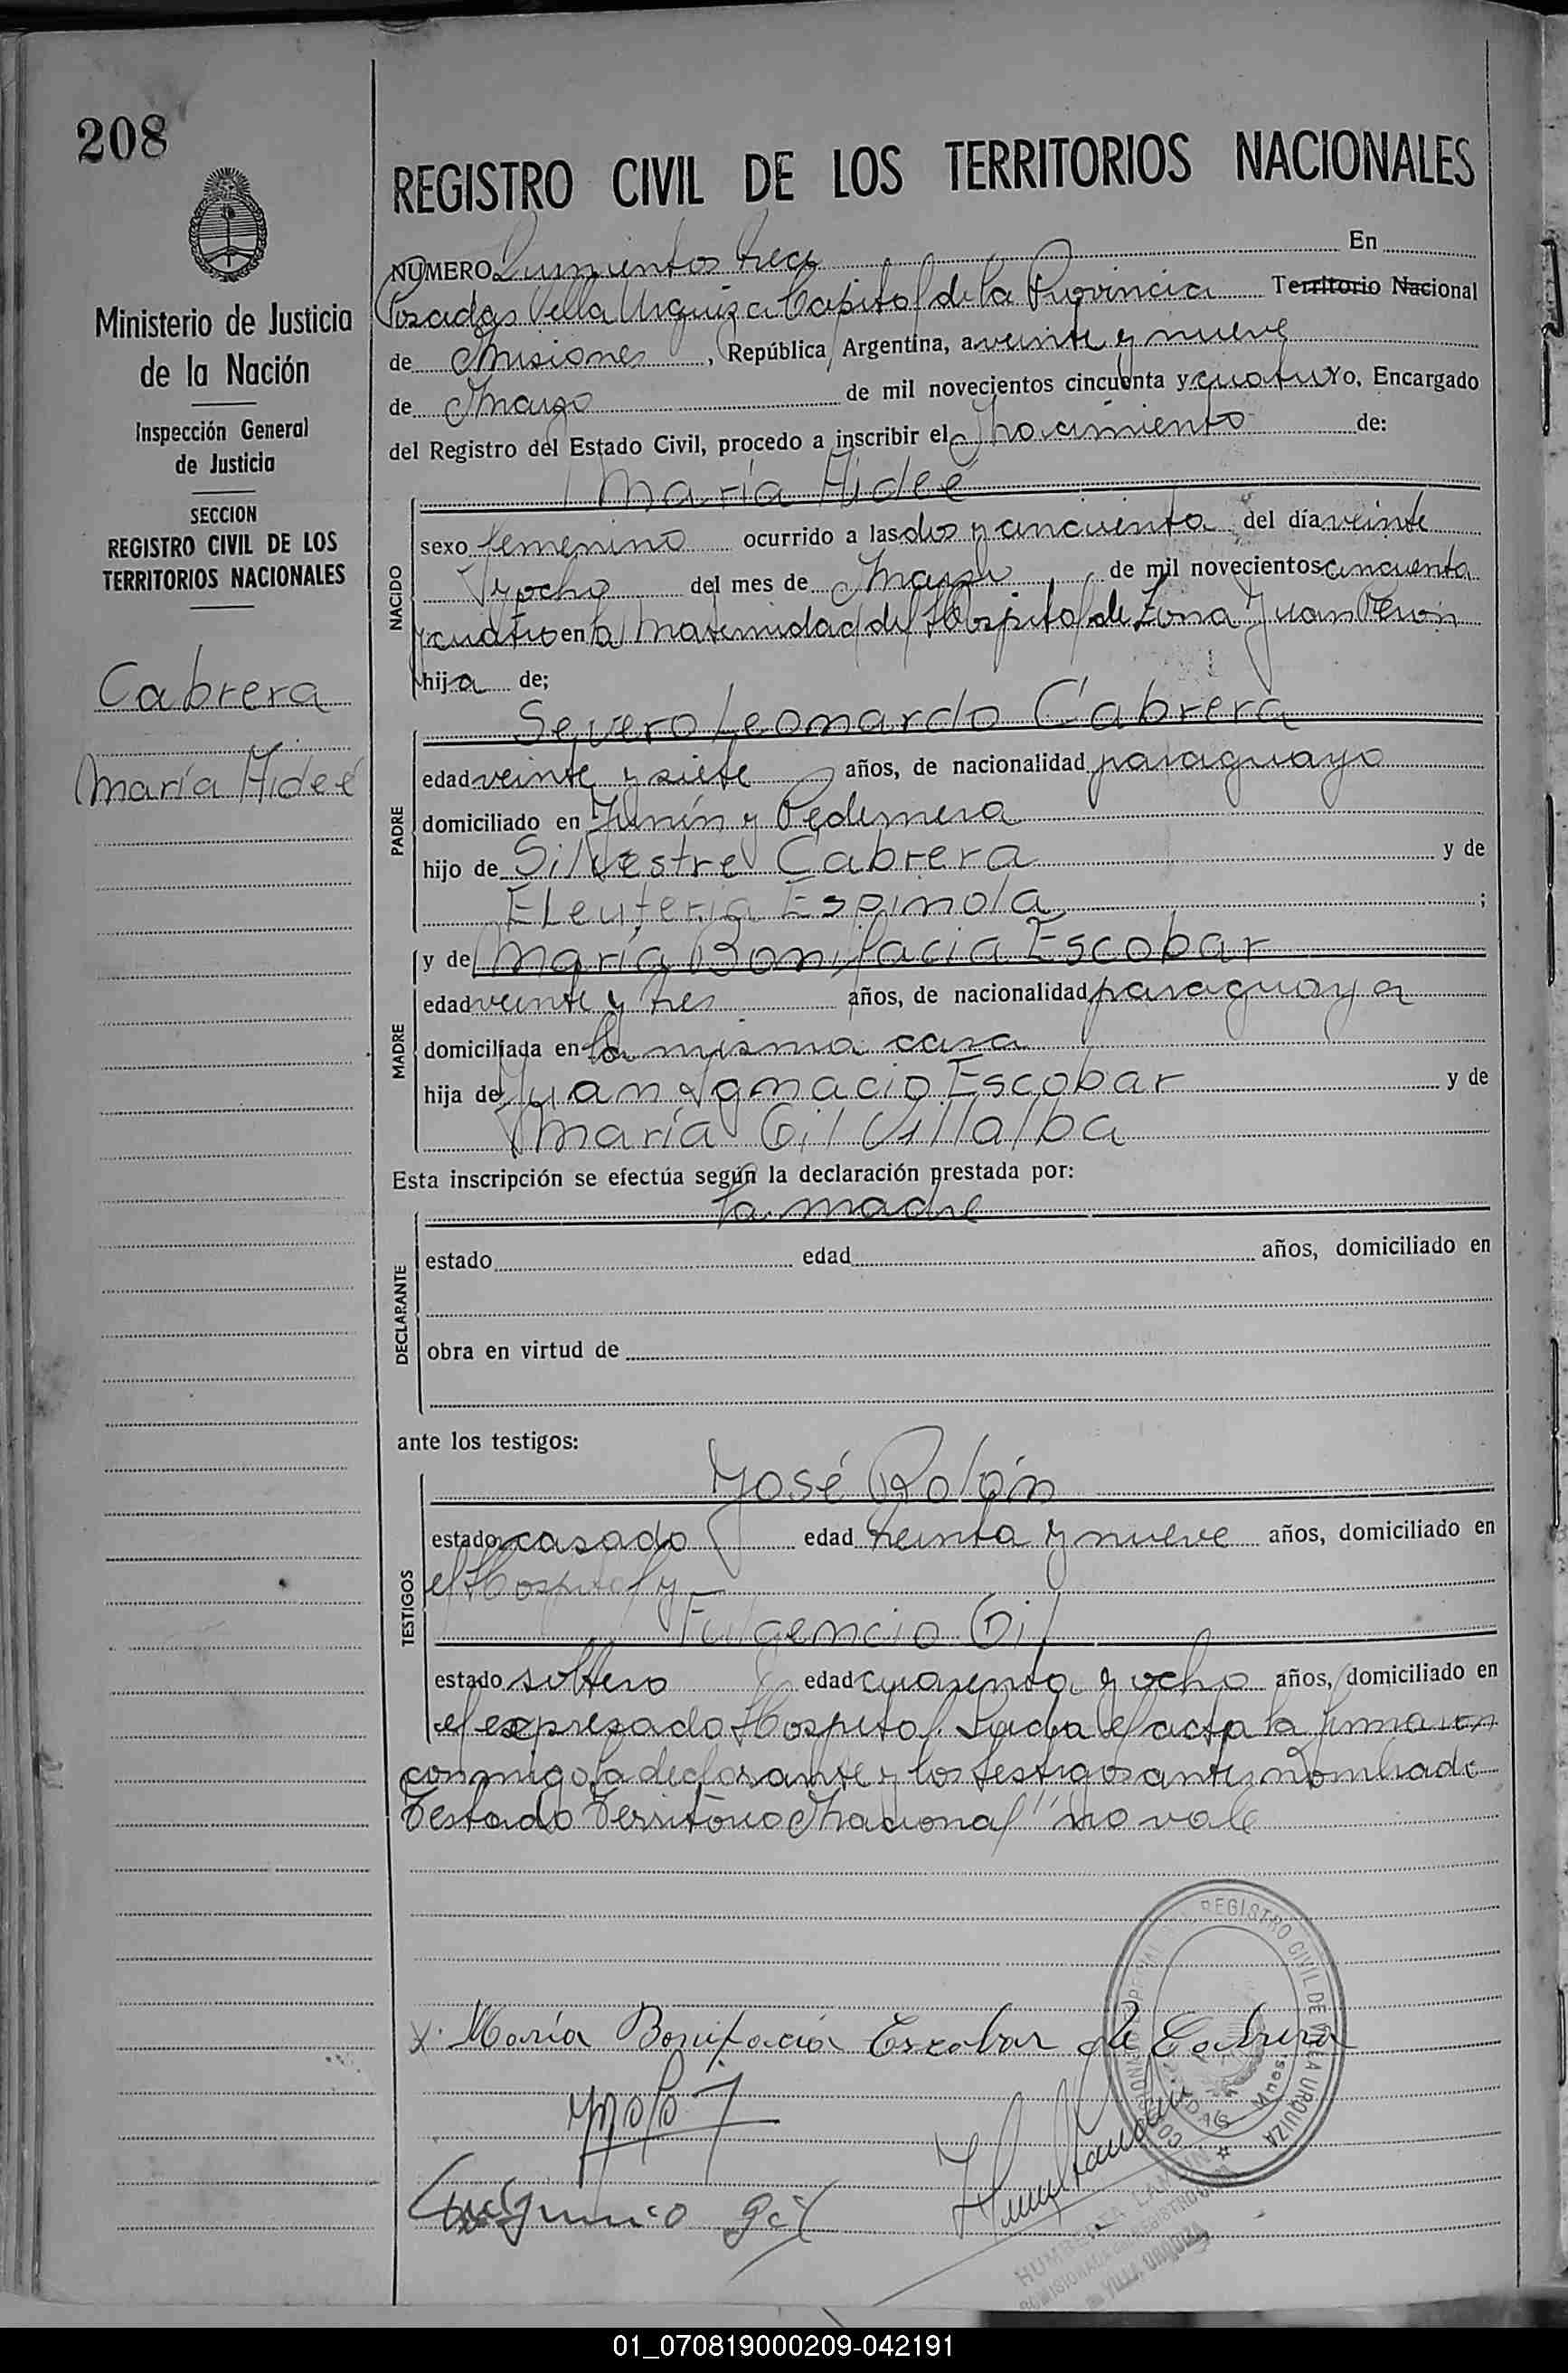 208
Ministerio de Justicia
de la Nación
Inspección General
de Justicia
SECCION
REGISTRO CIVIL DE LOS
TERRITORIOS NACIONALES
Cabrera
María Hideé
REGISTRO CIVIL DE LOS TERRITORIOS NACIONALES
NUMERO Doscientos trece En
Posadas Villa Urquiza Capital de la Provincia Territorio Nacional
de Misiones, República Argentina, a veinte y nueve
de Marzo de mil novecientos cincuenta y cuatro Yo, Encargado
del Registro del Estado Civil, procedo a inscribir el Nacimiento de:
María Hideé
NACIDO
sexo femenino ocurrido a las dos y cincuenta del día veinte
y ocho del mes de Marzo de mil novecientos cincuenta
y cuatro en la Maternidad del Hospital de Zona Juan Perón
hija de;
Severo Leonardo Cabrera
PADRE
edad veinte y siete años, de nacionalidad paraguayo
domiciliado en Junín y Pedernera
hijo de Silvestre Cabrera y de
Eleuteria Espinola ;
y de María Bonifacia Escobar
MADRE
edad veinte y tres años, de nacionalidad paraguaya
domiciliada en la misma casa
hija de Juan Ignacio Escobar y de
María Gil Villalba
Esta inscripción se efectúa según la declaración prestada por:
la madre
DECLARANTE
estado edad años, domiciliado en
obra en virtud de
ante los testigos:
José Rolón
TESTIGOS
estado casado edad treinta y nueve años, domiciliado en
el Hospital y
Fulgencio Gil
estado soltero edad cuarenta y ocho años, domiciliado en
el expresado Hospital. Leída el acta la firmaron
conmigo la declarante y los testigos antes nombrado
Testado Territorio Nacional" no vale
x. María Bonifacia Escobar de Cabrera
REGISTRO CIVIL DE VILLA URQUIZA
Gil
HUMBERTO
VILLA URQUIZA
01_070819000209-042191